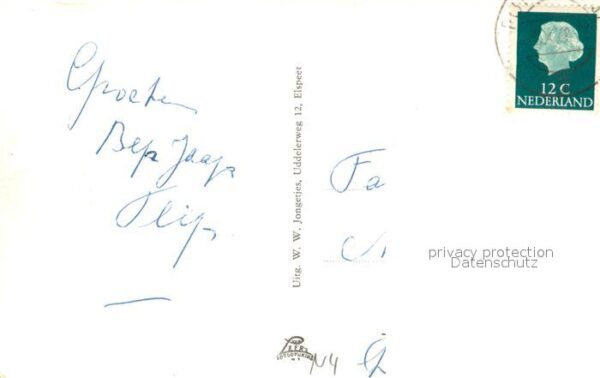 Groeten
Bep Jaap
Flip
Uitg. W. W. Jongetjes, Uddelerweg 12, Elspeet
12 C
NEDERLAND
Fa
privacy protection
Datenschutz
N4